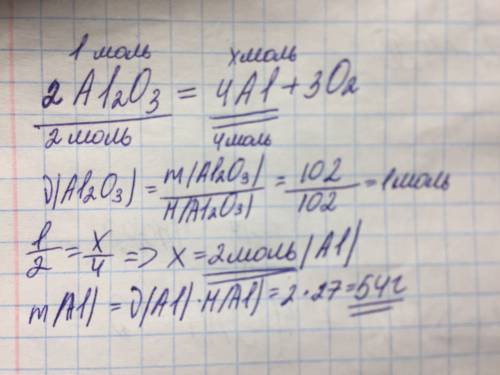 1 моль х моль
2Al₂O₃ = 4Al + 3O₂
2 моль 4 моль
ν(Al₂O₃) = m(Al₂O₃)/M(Al₂O₃) = 102/102 = 1 моль
1/2 = х/4 => х = 2 моль (Al)
m(Al) = ν(Al) · M(Al) = 2 · 27 = 54 г